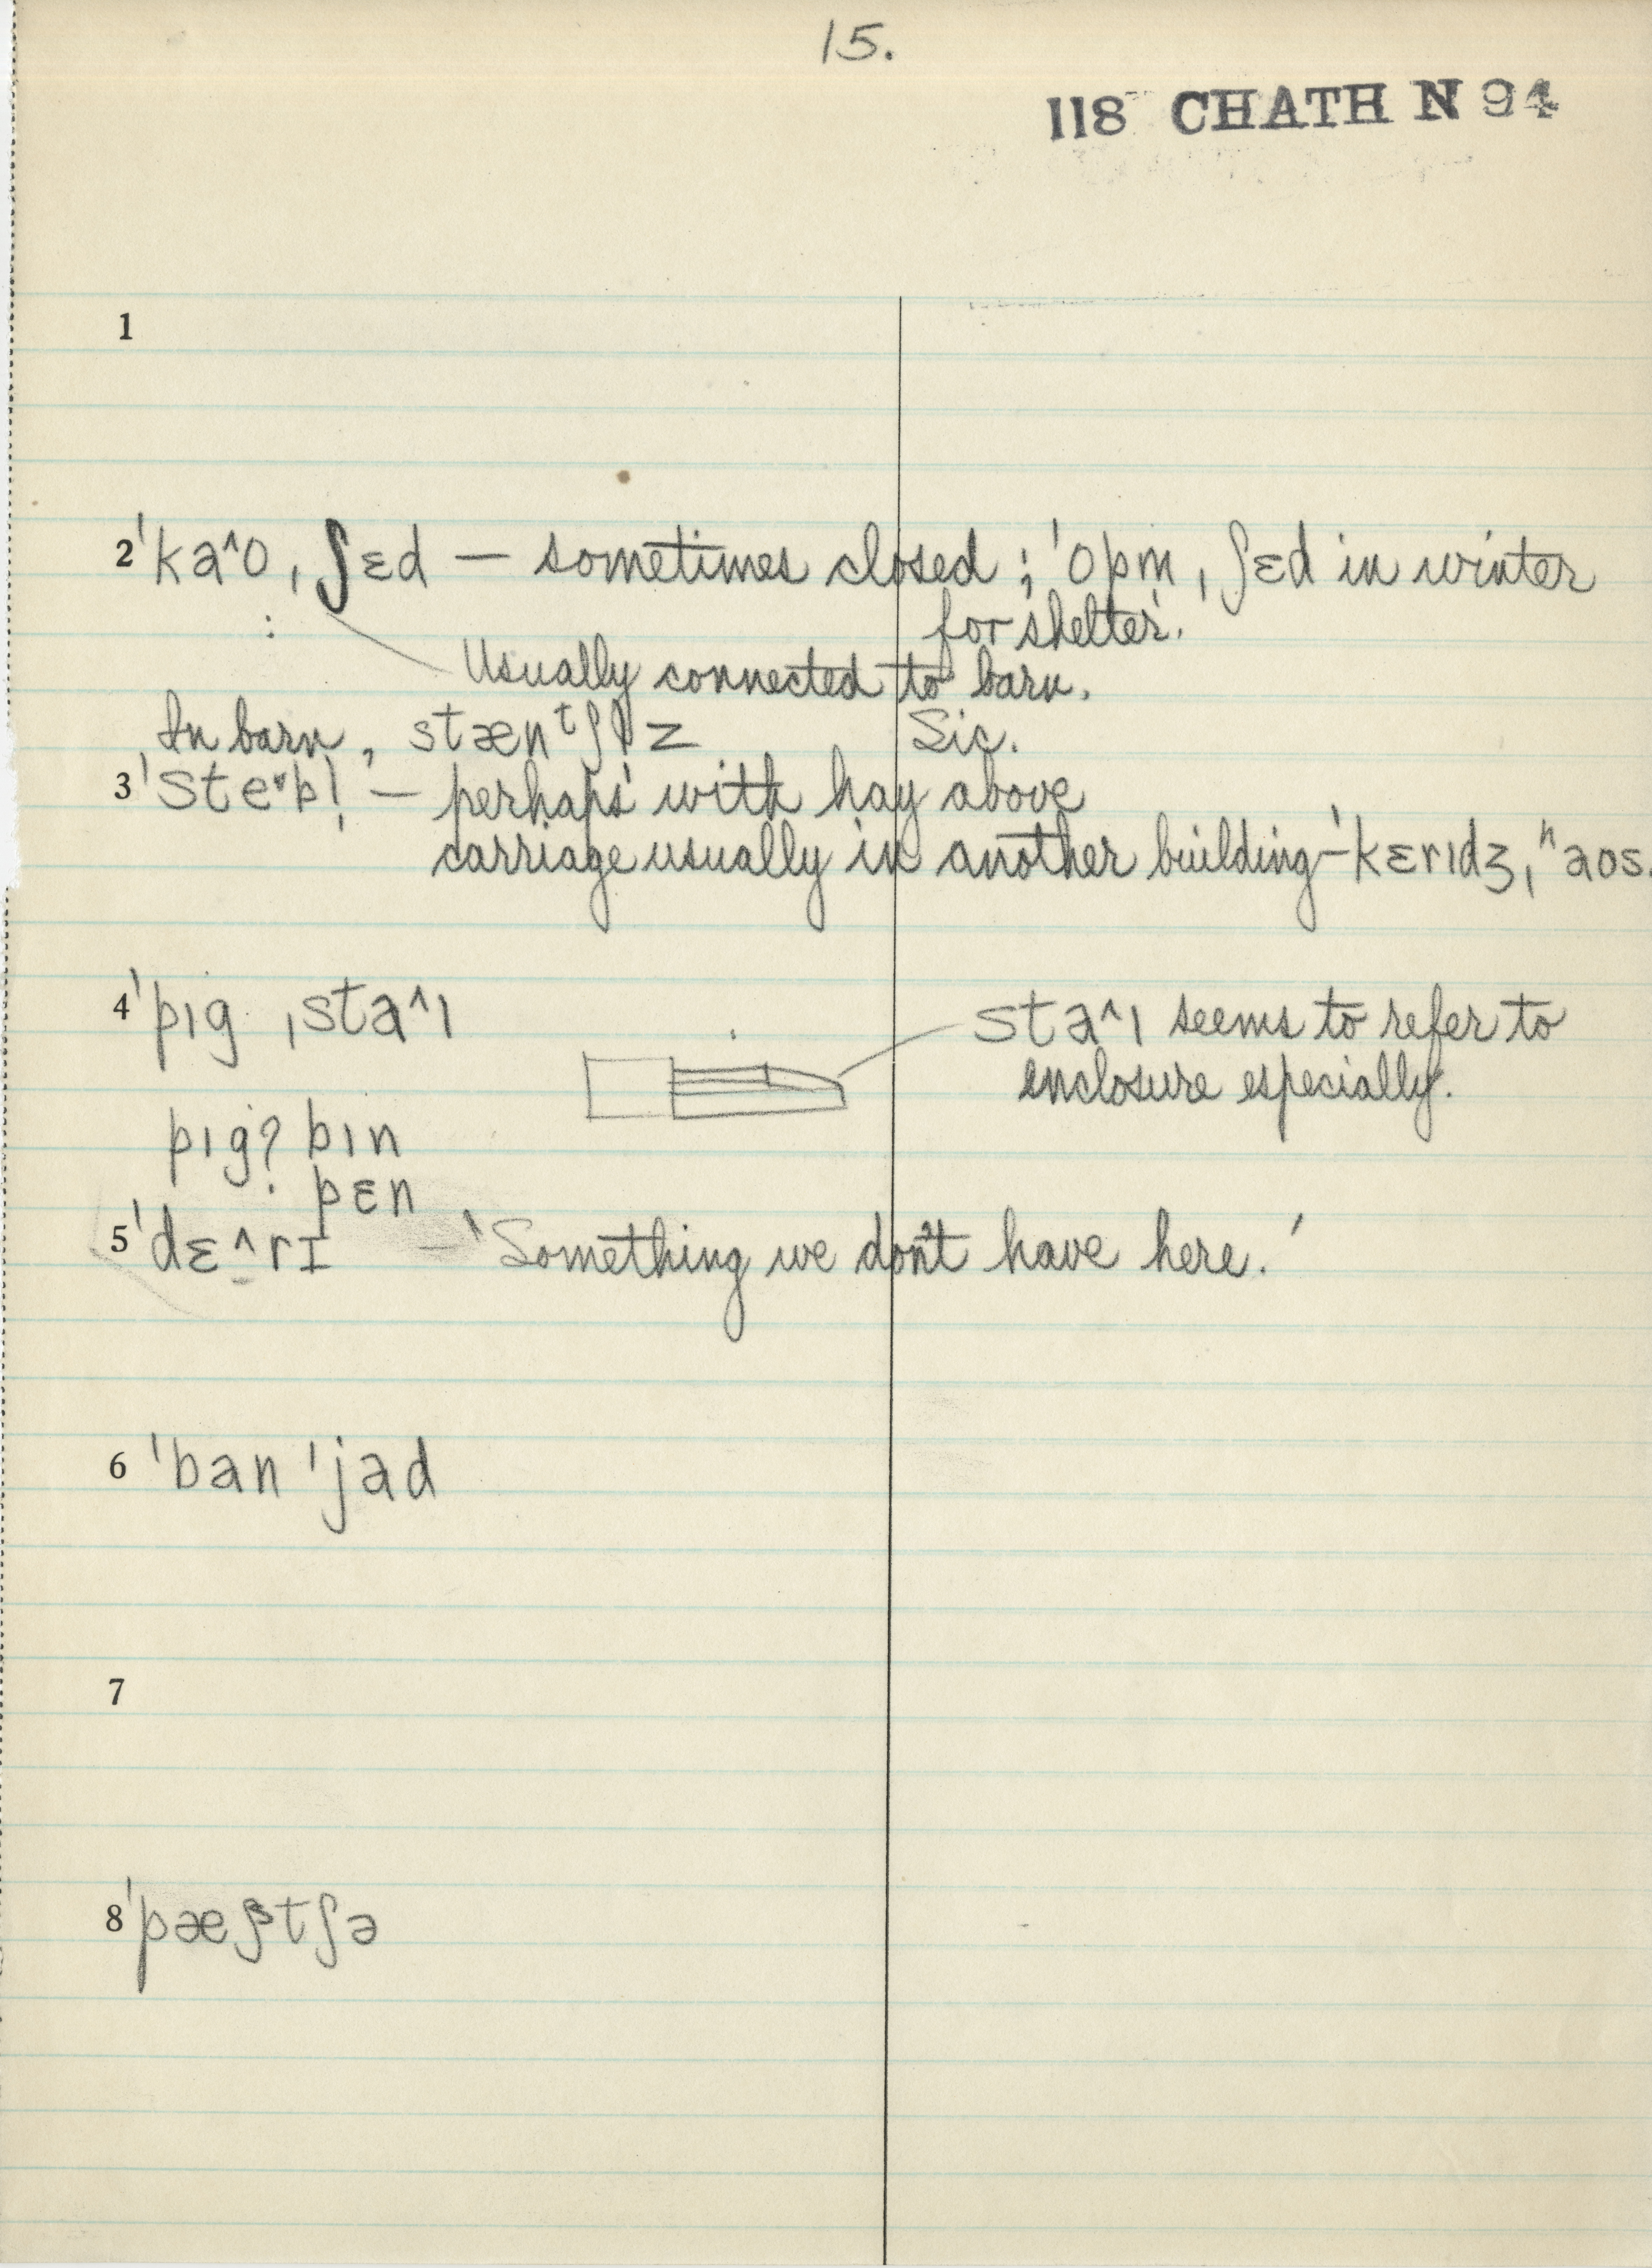 15.
118 CHATH N 94
1
2 ˈka^o ˌʃɛd — sometimes closed ; ˈopm ˌʃɛd in winter
for shelter.
Usually connected to barn.
In barn, Sic.
3 — perhaps with hay above
carriage usually in another building — ˈkɛrɪdʒ ˌhaos.
4 ˈpɪg ˌsta^ɪ sta^ɪ seems to refer to
enclosure especially.
pɪg? pɪn
pɛn
5 ˈdɛ^rɪ — 'Something we don't have here.'
6 ˈban ˈjad
7
8